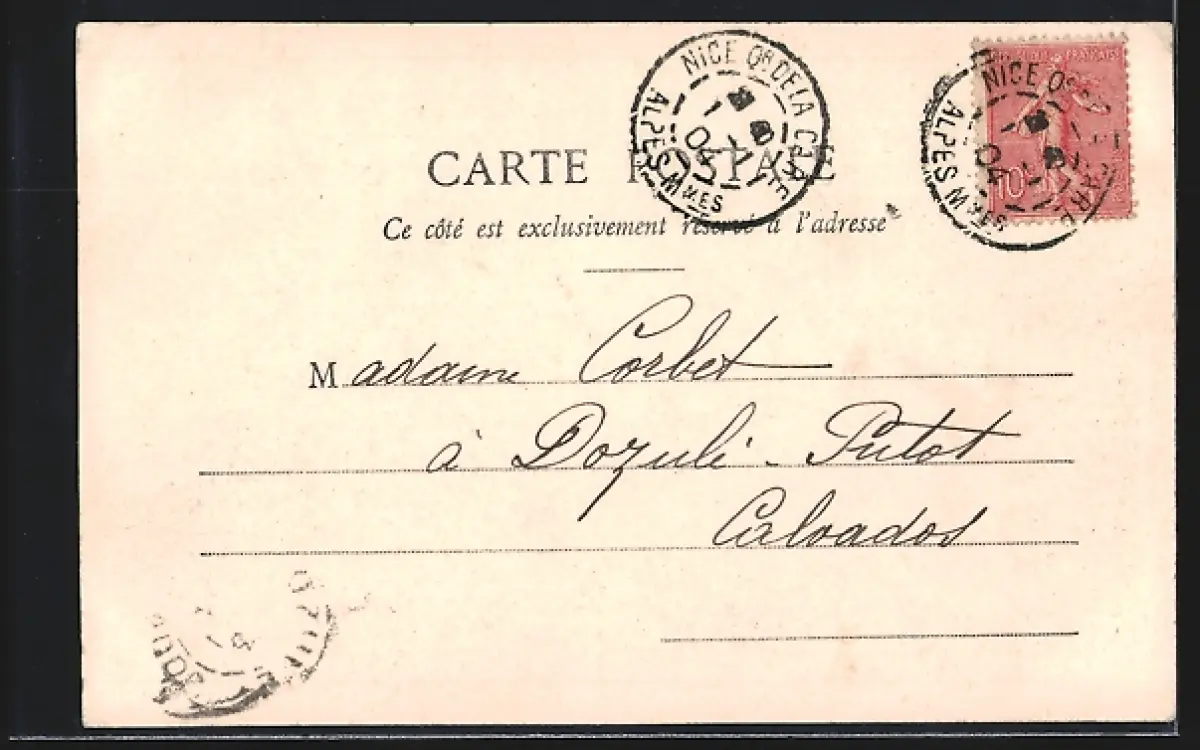 NICE Qr DE LA GARE
04
ALPES MMES
NICE Qr
GARE
04
ALPES MMES
FRANÇAISE
10
CARTE POSTALE
Ce côté est exclusivement réservé à l'adresse
Madame Corbet
à Dozuli - Putot
Calvados